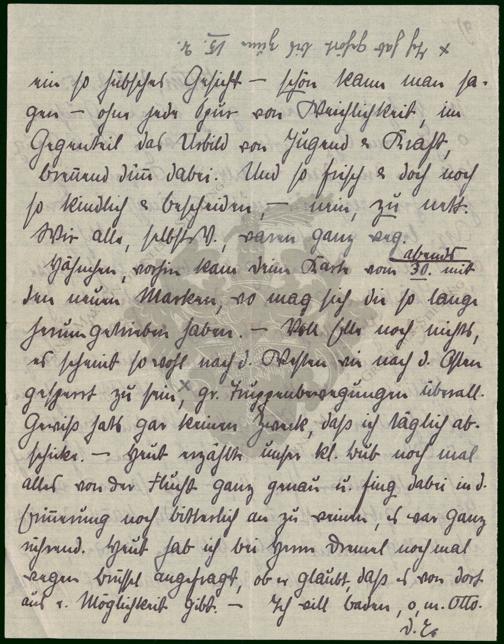 ein so hübsches Gesicht – schön kann man sa-
gen – ohne jede Spur von Weichlichkeit, im
Gegenteil das Urbild von Jugend & Kraft,
brennend dünn dabei. Und so frisch & doch noch
so kindlich & bescheiden, – nein, zu nett.
Wir alle, selbst V., waren ganz weg.
abends
Hähnchen, vorhin kam deine Karte vom 30. mit
den neuen Marken, wo mag sich die so lange
herumgetrieben haben. – Voll solle noch nichts,
es scheint sowohl nach d. Westen wie nach d. Osten
gesperrt zu sein, x gr. Truppenbewegungen überall.
Gewiss hats gar keinen Zweck, daß ich täglich ab-
schicke. – Heut erzählte unser kl. Bub noch mal
alles von der Flucht ganz genau u. fing dabei in d.
Erinnerung noch bitterlich an zu weinen, es war ganz
rührend. Heut hab ich bei Herrn Dremel nochmal
wegen Brüssel angefragt, ob er glaubt, daß es von dort
aus e. Möglichkeit gibt. – Ich will baden, o, m. Otto.
x Ich hab gehört bis zum 15. 2.